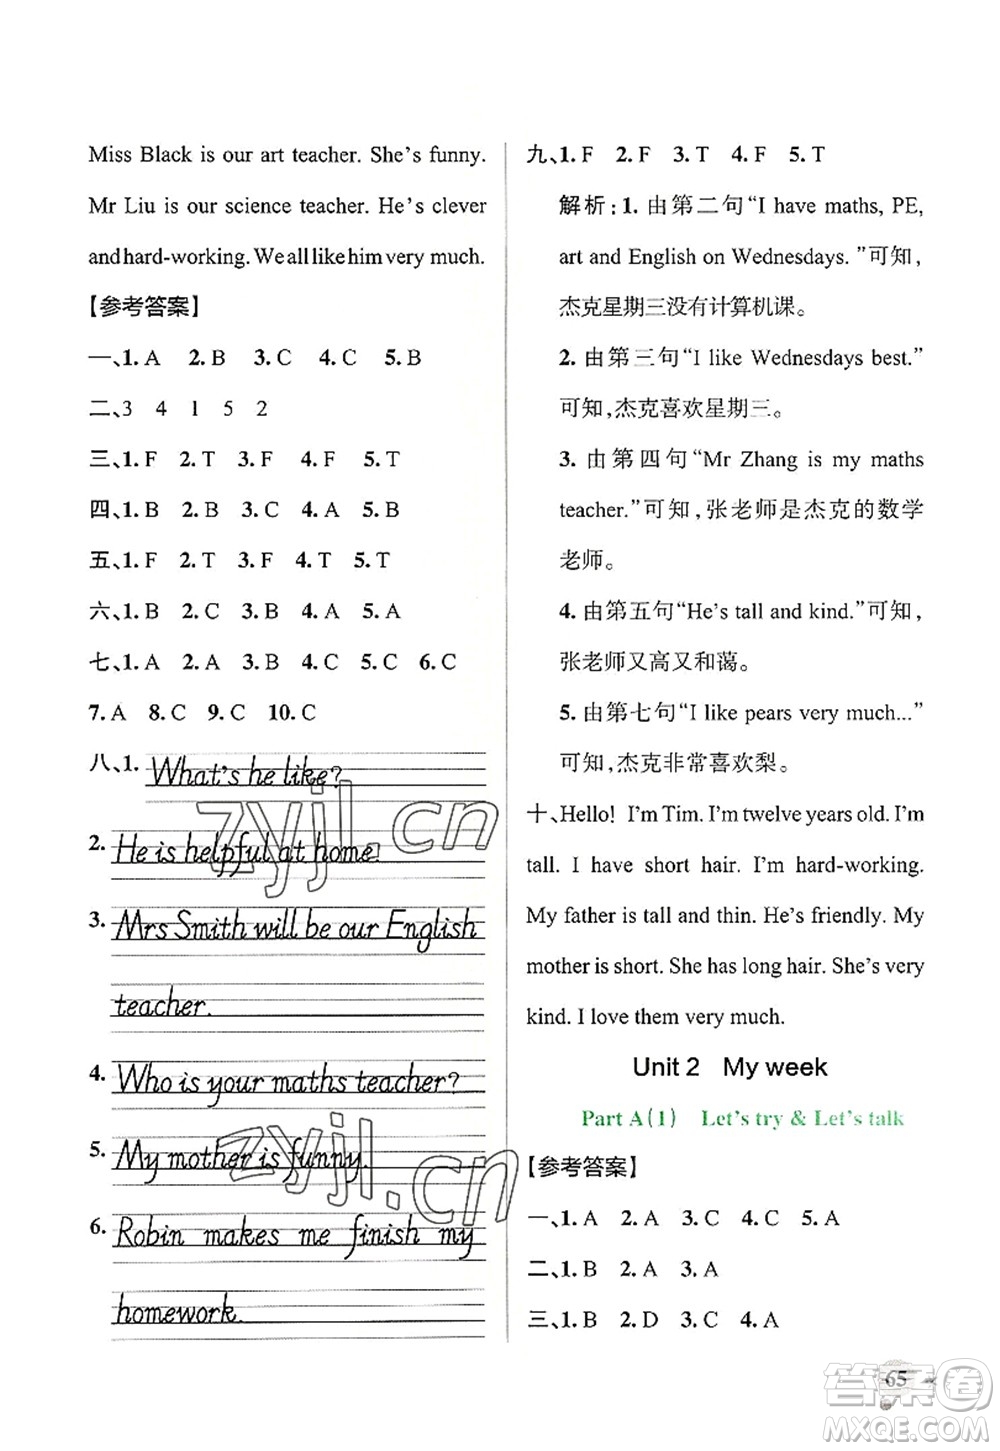 Miss Black is our art teacher. She's funny.
Mr Liu is our science teacher. He's clever
and hard-working. We all like him very much.
【参考答案】
一、1. A 2. B 3. C 4. C 5. B
二、3 4 1 5 2
三、1. F 2. T 3. F 4. F 5. T
四、1. B 2. B 3. C 4. A 5. B
五、1. F 2. T 3. F 4. T 5. T
六、1. B 2. C 3. B 4. A 5. A
七、1. A 2. A 3. B 4. C 5. C 6. C
7. A 8. C 9. C 10. C
八、1. What's he like?
2. He is helpful at home.
3. Mrs Smith will be our English
teacher.
4. Who is your maths teacher?
5. My mother is funny.
6. Robin makes me finish my
homework.
九、1. F 2. F 3. T 4. F 5. T
解析：1. 由第二句“I have maths, PE,
art and English on Wednesdays.”可知，
杰克星期三没有计算机课。
2. 由第三句“I like Wednesdays best.”
可知，杰克喜欢星期三。
3. 由第四句“Mr Zhang is my maths
teacher.”可知，张老师是杰克的数学
老师。
4. 由第五句“He's tall and kind.”可知，
张老师又高又和蔼。
5. 由第七句“I like pears very much...”
可知，杰克非常喜欢梨。
十、Hello! I'm Tim. I'm twelve years old. I'm
tall. I have short hair. I'm hard-working.
My father is tall and thin. He's friendly. My
mother is short. She has long hair. She's very
kind. I love them very much.
Unit 2 My week
Part A(1) Let's try & Let's talk
【参考答案】
一、1. A 2. A 3. C 4. C 5. A
二、1. B 2. A 3. A
三、1. B 2. D 3. C 4. A
65
zyjl.cn
zyjl.cn
答案卷
MXQE.COM